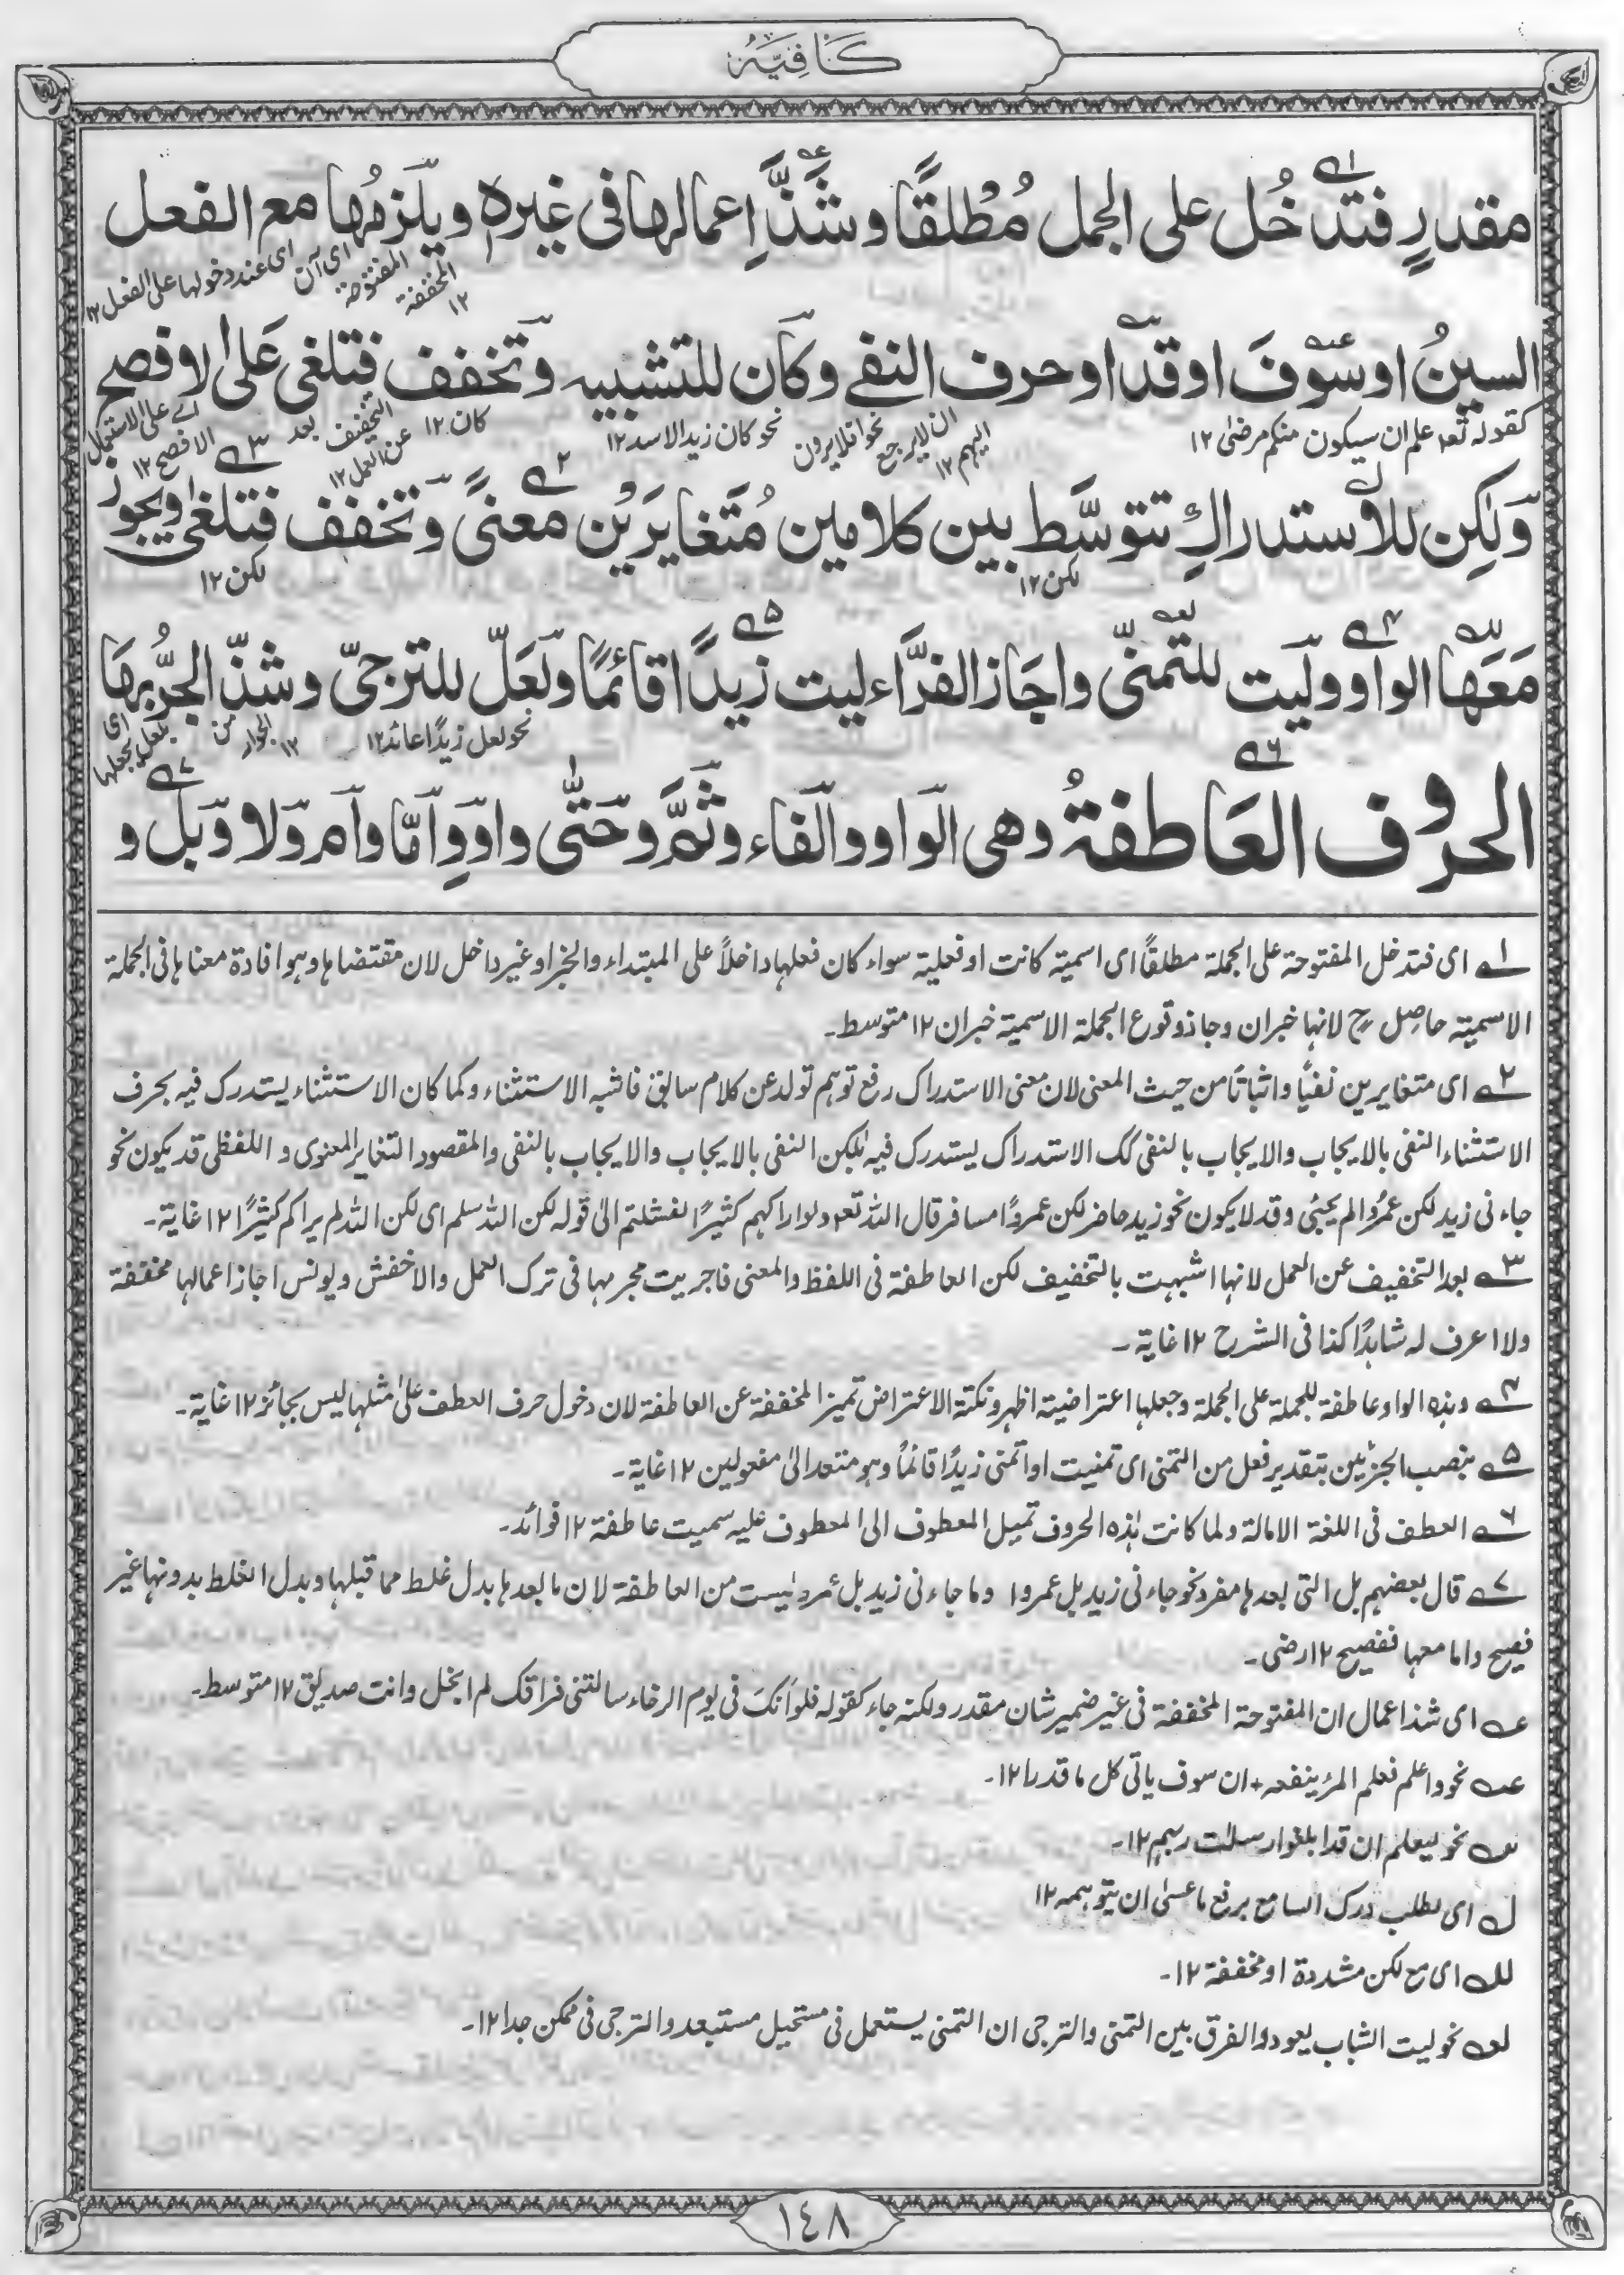 كَافِيَة
مقدرٍ فتدخُل على الجمل مُطلقًا وشذَّ اِعمالها فى غيرهٖ ويلزمُها مع الفعل
اى آن المفتوحة المخففة ١٢
اى عند دخولها على الفعل ١٢
السينُ او سَوْفَ او قد او حرف النفى وكَأن للتشبيه وتخفف فتلغى عَلى الافصح
كقوله تعـ علم ان سيكون منكم مرضىٰ ١٢
نحو افلا يرون ان لا يرجع اليهم ١٢
نحو كان زيد الاسد ١٢
كان ١٢
بعد التخفيف عن العمل ١٢
اے على الاستعمال الافصح ١٢
وَلٰكِن للاستدراكِ تتوسَّط بين كلامين مُتَغايرَيْن معنىً وتخفف فتلغىٰ ويجوز
لكن ١٢
لكن ١٢
مَعَهَا الواو وليت للتمنّى واجَاز الفرَّاء ليت زيدًا قائمًا ولعَلّ للترجىّ وشذّ الجرُّ بهَا
نحو لعل زيدًا عائد ١٢
الحروف العَاطفةُ وهى الواو والفاء وثمَّ وحَتّٰى واو واِمّا وام ولا وبل و
١ اى فتدخل المفتوحة على الجملة مطلقًا اى اسمية كانت او فعلية سواء كان فعلها داخلاً على المبتداء والخبر او غير داخل لان مقتضاها وهو افادة معناها فى الجملة
الاسمية حاصل ح لانها خبران وجاز وقوع الجملة الاسمية خبران ١٢ متوسط۔
٢ اى متغايرين نفيًا واثباتًا من حيث المعنى لان معنى الاستدراك رفع توهم تولد عن كلام سابق فاشبه الاستثناء وكما كان الاستثناء يستدرك فيه بحرف
الاستثناء النفى بالايجاب والايجاب بالنفى كك الاستدراك يستدرك فيه بلٰكن النفى بالايجاب والايجاب بالنفى والمقصود التغاير المعنوى و اللفظى قد يكون نحو
جاءنى زيد لكن عمرًوا لم يجئ وقد لا يكون نحو زيد حاضر لكن عمروًا مسافر قال اللّٰه تعـ ولو اراكهم كثيرًا لفشلتم الىٰ قوله لكن اللّٰه سلم اى لكن اللّٰه لم يراكم كثيرًا ١٢ غاية۔
٣ بعد التخفيف عن العمل لانها اشبهت بالتخفيف لكن العاطفة فى اللفظ والمعنى فاجريت مجرىها فى ترك العمل والاخفش ويونس اجازا اعمالها مخففة
ولا اعرف له شاهدًا كذا فى الشرح ١٢ غاية۔
٤ وهذه الواو عاطفة للجملة على الجملة وجعلها اعتراضية اظهر ونكتة الاعتراض تميز المخففة عن العاطفة لان دخول حرف العطف علىٰ مثلها ليس بجائز ١٢ غاية۔
٥ بنصب الجزئين بتقدير فعل من التمنى اى تمنيت او اتمنى زيدًا قائمًا وهو متعد الىٰ مفعولين ١٢ غاية۔
٦ العطف فى اللغة الامالة ولما كانت هذه الحروف تميل المعطوف الى المعطوف عليه سميت عاطفة ١٢ فوائد۔
٧ قال بعضهم بل التى بعدها مفرد نحو جاءنى زيد بل عمروا وما جاءنى زيد بل عمرو ليست من العاطفة لان ما بعدها بدل غلط مما قبلها وبدل الغلط بدونها غير
فصيح واما معها ففصيح ١٢ رضى۔
عہ اى شذ اعمال ان المفتوحة المخففة فى غير ضمير شان مقدر ولكنه جاء كقوله فلو اَنكَ فى يوم الرخاء سالتنى فراقك لم ابخل وانت صديق ١٢ متوسط۔
عہ نحو واعلم فعلم المرء ينفعه + ان سوف ياتى كل ما قدرا ١٢۔
سہ نحو ليعلم ان قد ابلغوا رسالت ربهم ١٢۔
لہ اى لطلب درك السامع برفع ما عسىٰ ان يتوهمه ١٢
للہ اى مع لكن مشددة او مخففة ١٢۔
لعہ نحو ليت الشباب يعود والفرق بين التمنى والترجى ان التمنى يستعمل فى مستحيل مستبعد والترجى فى ممكن جدا ١٢۔
١٤٨